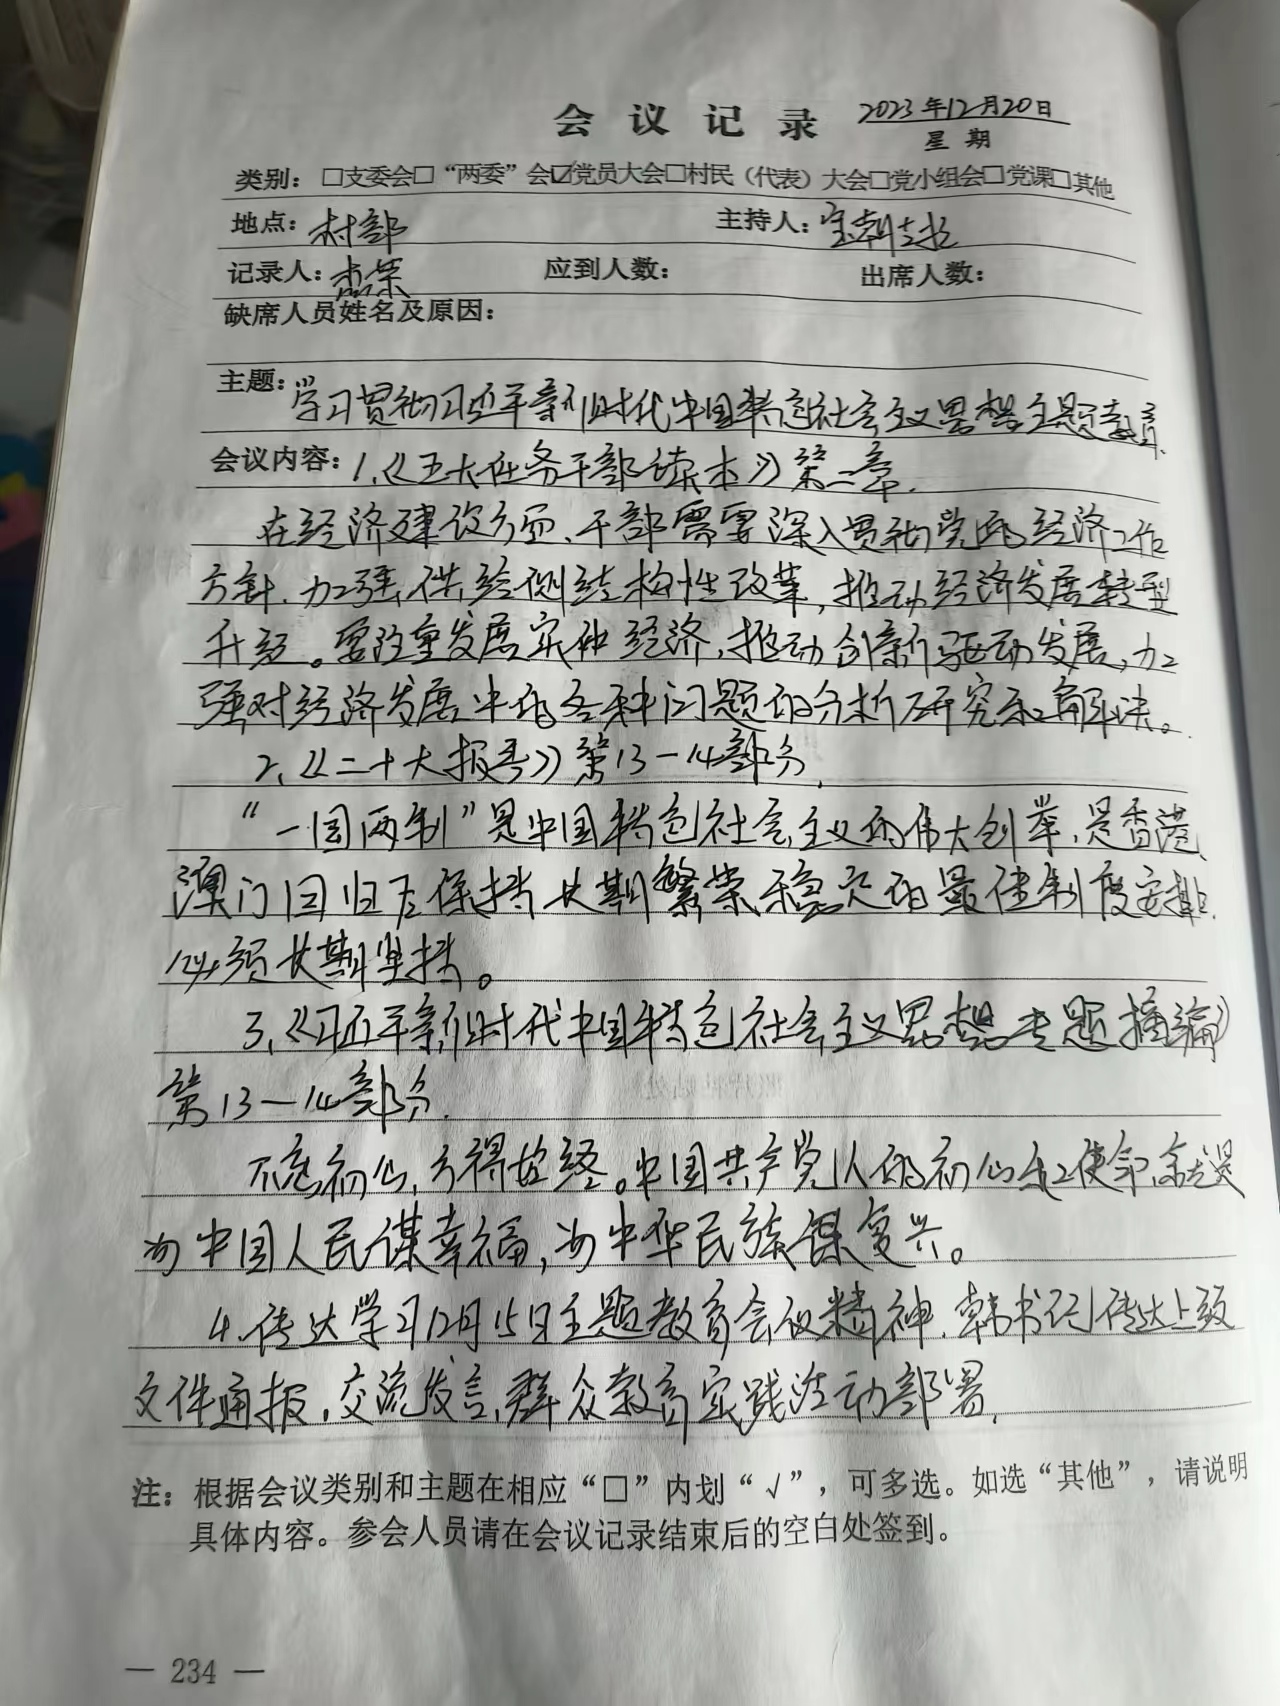 会议记录 2023年12月20日
星期
类别：□支委会□“两委”会☑党员大会□村民（代表）大会□党小组会□党课□其他
地点：村部 主持人：宝朝
记录人： 应到人数： 出席人数：
缺席人员姓名及原因：
主题：学习贯彻习近平新时代中国特色社会主义思想主题教育.
会议内容：1、《五大任务干部读本》第二章.
在经济建设方面、干部需要深入贯彻党的经济工作
方针、加强供给侧结构性改革，推动经济发展转型
升级。要注重发展实体经济，推动创新驱动发展，加
强对经济发展中的各种问题的分析研究和解决。
2、《二十大报告》第13一14部分.
“一国两制”是中国特色社会主义的伟大创举、是香港、
澳门回归后保持长期繁荣稳定的最佳制度安排.
必须长期坚持。
3、《习近平新时代中国特色社会主义思想专题摘编》
第13一14部分.
不忘初心，方得始终。中国共产党人的初心和使命，就是
为中国人民谋幸福，为中华民族谋复兴。
4、传达学习12月15日主题教育会议精神、韩书记传达上级
文件通报，交流发言，群众教育实践活动部署.
注：根据会议类别和主题在相应“□”内划“√”，可多选。如选“其他”，请说明
具体内容。参会人员请在会议记录结束后的空白处签到。
— 234 —